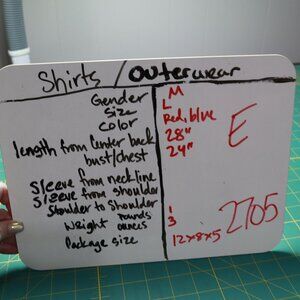 Shirts / Outerwear
Gender M
Size L
Color Red, blue
length from Center back 28"
bust/chest 24"
E
Sleeve from neckline
Sleeve from shoulder
Shoulder to Shoulder
Weight Pounds 1
ounces 3
Package size 12x8x5
2705